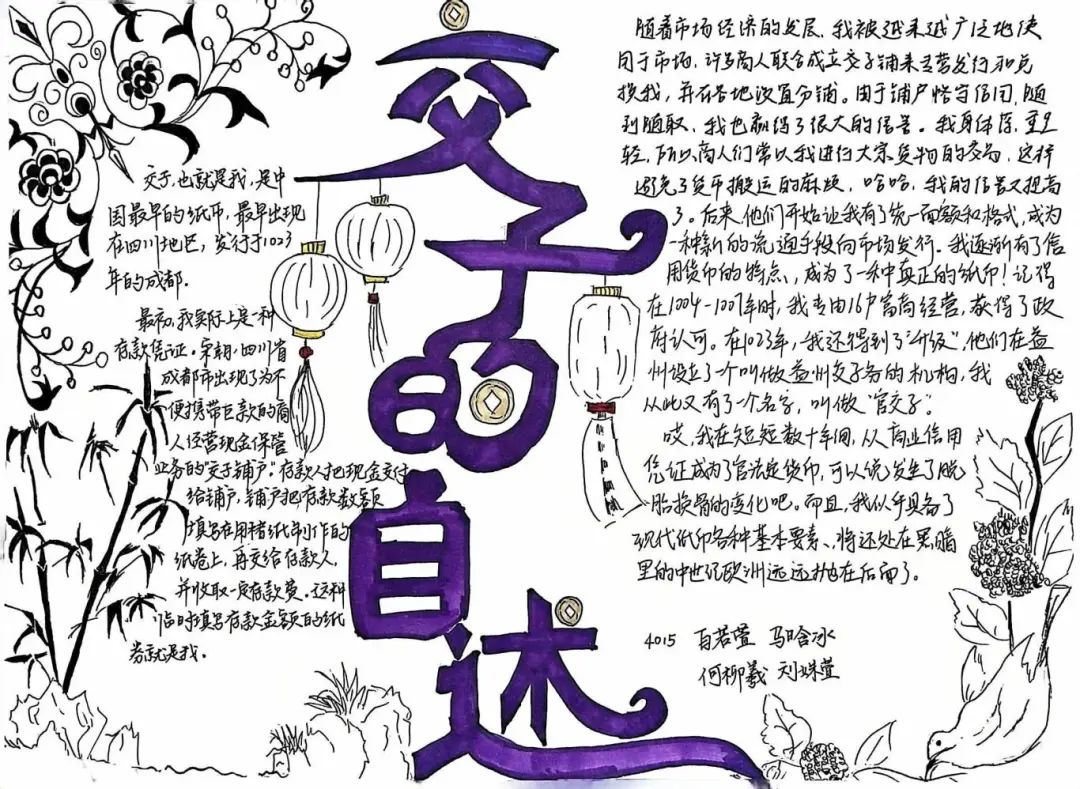 交子的自述
交子,也就是我,是中
国最早的纸币,最早出现
在四川地区,发行于1023
年的成都.
最初,我实际上是一种
存款凭证.宋朝,四川省
成都市出现了为不
便携带巨款的商
人经营现金保管
业务的“交子铺户”.存款人把现金交付
给铺户,铺户把存款数额
填写在用楮纸制作的
纸卷上,再交给存款人,
并收取一定存款费.这种
临时填写存款金额的纸
券就是我.
随着市场经济的发展,我被越来越广泛地使
用于市场,许多商人联合成立交子铺来主营发行和兑
换我,并在各地设置分铺。由于铺户恪守信用,随
到随取,我也赢得了很大的信誉。我身体厚,重量
轻,所以商人们常以我进行大宗货物的交易,这样
避免了货币搬运的麻烦,哈哈,我的信誉又提高
了。后来,他们开始让我有了统一面额和格式,成为
一种新的流通手段向市场发行.我逐渐有了信
用货币的特点,成为了一种真正的纸币!记得
在1004-1007年时,我专由16户富商经营,获得了政
府认可。在1023年,我还得到了“升级”,他们在益
州设立了一个叫做益州交子务的机构,我
从此又有了一个名字,叫做“官交子”.
哎,我在短短数十年间,从商业信用
凭证成为了官法定货币,可以说发生了脱
胎换骨的变化吧。而且,我似乎具备了
现代纸币各种基本要素,将还处在黑暗
里的中世纪欧洲远远抛在后面了。
4015 白若萱 马晗冰
何柳羲 刘姝萱